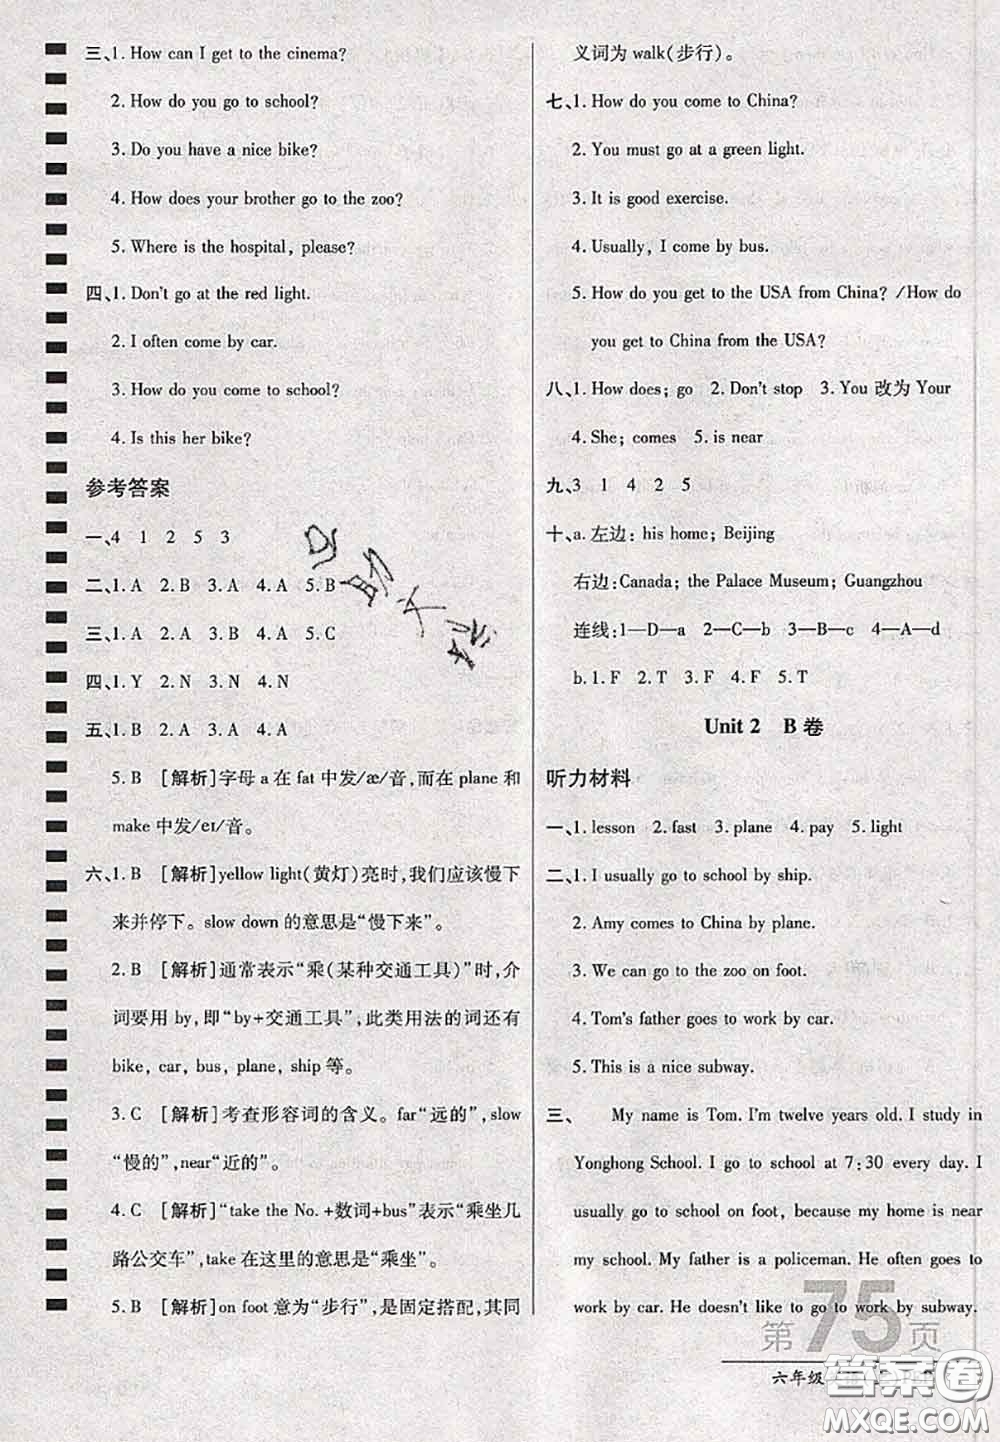 三、1. How can I get to the cinema?
2. How do you go to school?
3. Do you have a nice bike?
4. How does your brother go to the zoo?
5. Where is the hospital, please?
四、1. Don't go at the red light.
2. I often come by car.
3. How do you come to school?
4. Is this her bike?
参考答案
一、4 1 2 5 3
二、1. A 2. B 3. A 4. A 5. B
三、1. A 2. A 3. B 4. A 5. C
四、1. Y 2. N 3. N 4. N
五、1. B 2. A 3. A 4. A
5. B [解析]字母 a 在 fat 中发/æ/音,而在 plane 和
make 中发/eɪ/音。
六、1. B [解析]yellow light(黄灯)亮时,我们应该慢下
来并停下。slow down 的意思是“慢下来”。
2. B [解析]通常表示“乘(某种交通工具)”时,介
词要用 by,即“by+交通工具”,此类用法的词还有
bike, car, bus, plane, ship 等。
3. C [解析]考查形容词的含义。far“远的”, slow
“慢的”,near“近的”。
4. C [解析]“take the No. +数词+bus”表示“乘坐几
路公交车”,take 在这里的意思是“乘坐”。
5. B [解析]on foot 意为“步行”,是固定搭配,其同
义词为 walk(步行)。
七、1. How do you come to China?
2. You must go at a green light.
3. It is good exercise.
4. Usually, I come by bus.
5. How do you get to the USA from China? /How do
you get to China from the USA?
八、1. How does; go 2. Don't stop 3. You 改为 Your
4. She; comes 5. is near
九、3 1 4 2 5
十、a. 左边: his home; Beijing
右边:Canada; the Palace Museum; Guangzhou
连线:1—D—a 2—C—b 3—B—c 4—A—d
b. 1. F 2. T 3. F 4. F 5. T
Unit 2 B 卷
听力材料
一、1. lesson 2. fast 3. plane 4. pay 5. light
二、1. I usually go to school by ship.
2. Amy comes to China by plane.
3. We can go to the zoo on foot.
4. Tom's father goes to work by car.
5. This is a nice subway.
三、 My name is Tom. I'm twelve years old. I study in
Yonghong School. I go to school at 7:30 every day. I
usually go to school on foot, because my home is near
my school. My father is a policeman. He often goes to
work by car. He doesn't like to go to work by subway.
第75页
六年级
答案卷
MXQE.COM